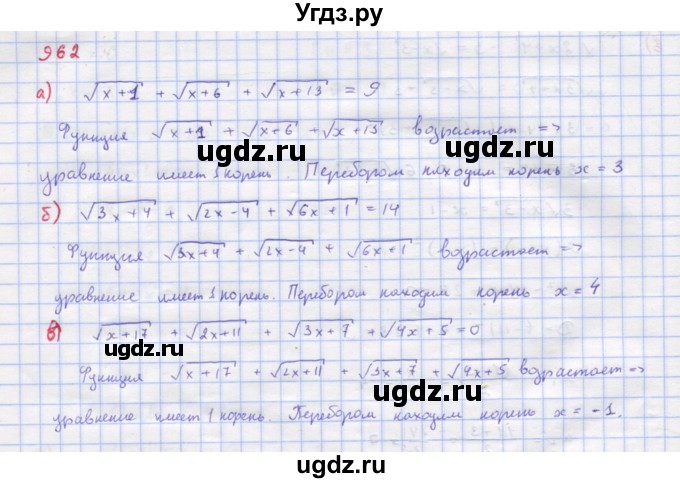 Угдз.ру
962
а) √x+1 + √x+6 + √x+13 = 9
Функция √x+1 + √x+6 + √x+13 возрастает =>
уравнение имеет 1 корень. Перебором находим корень x = 3
б) √3x+4 + √2x-4 + √6x+1 = 14
Функция √3x+4 + √2x-4 + √6x+1 возрастает =>
уравнение имеет 1 корень. Перебором находим корень x = 4
в) √x+17 + √2x+11 + √3x+7 + √4x+5 = 0
Функция √x+17 + √2x+11 + √3x+7 + √4x+5 возрастает =>
уравнение имеет 1 корень. Перебором находим корень x = -1.
угдз.ру
угдз.ру
угдз.ру
угдз.ру
угдз.ру
угдз.ру